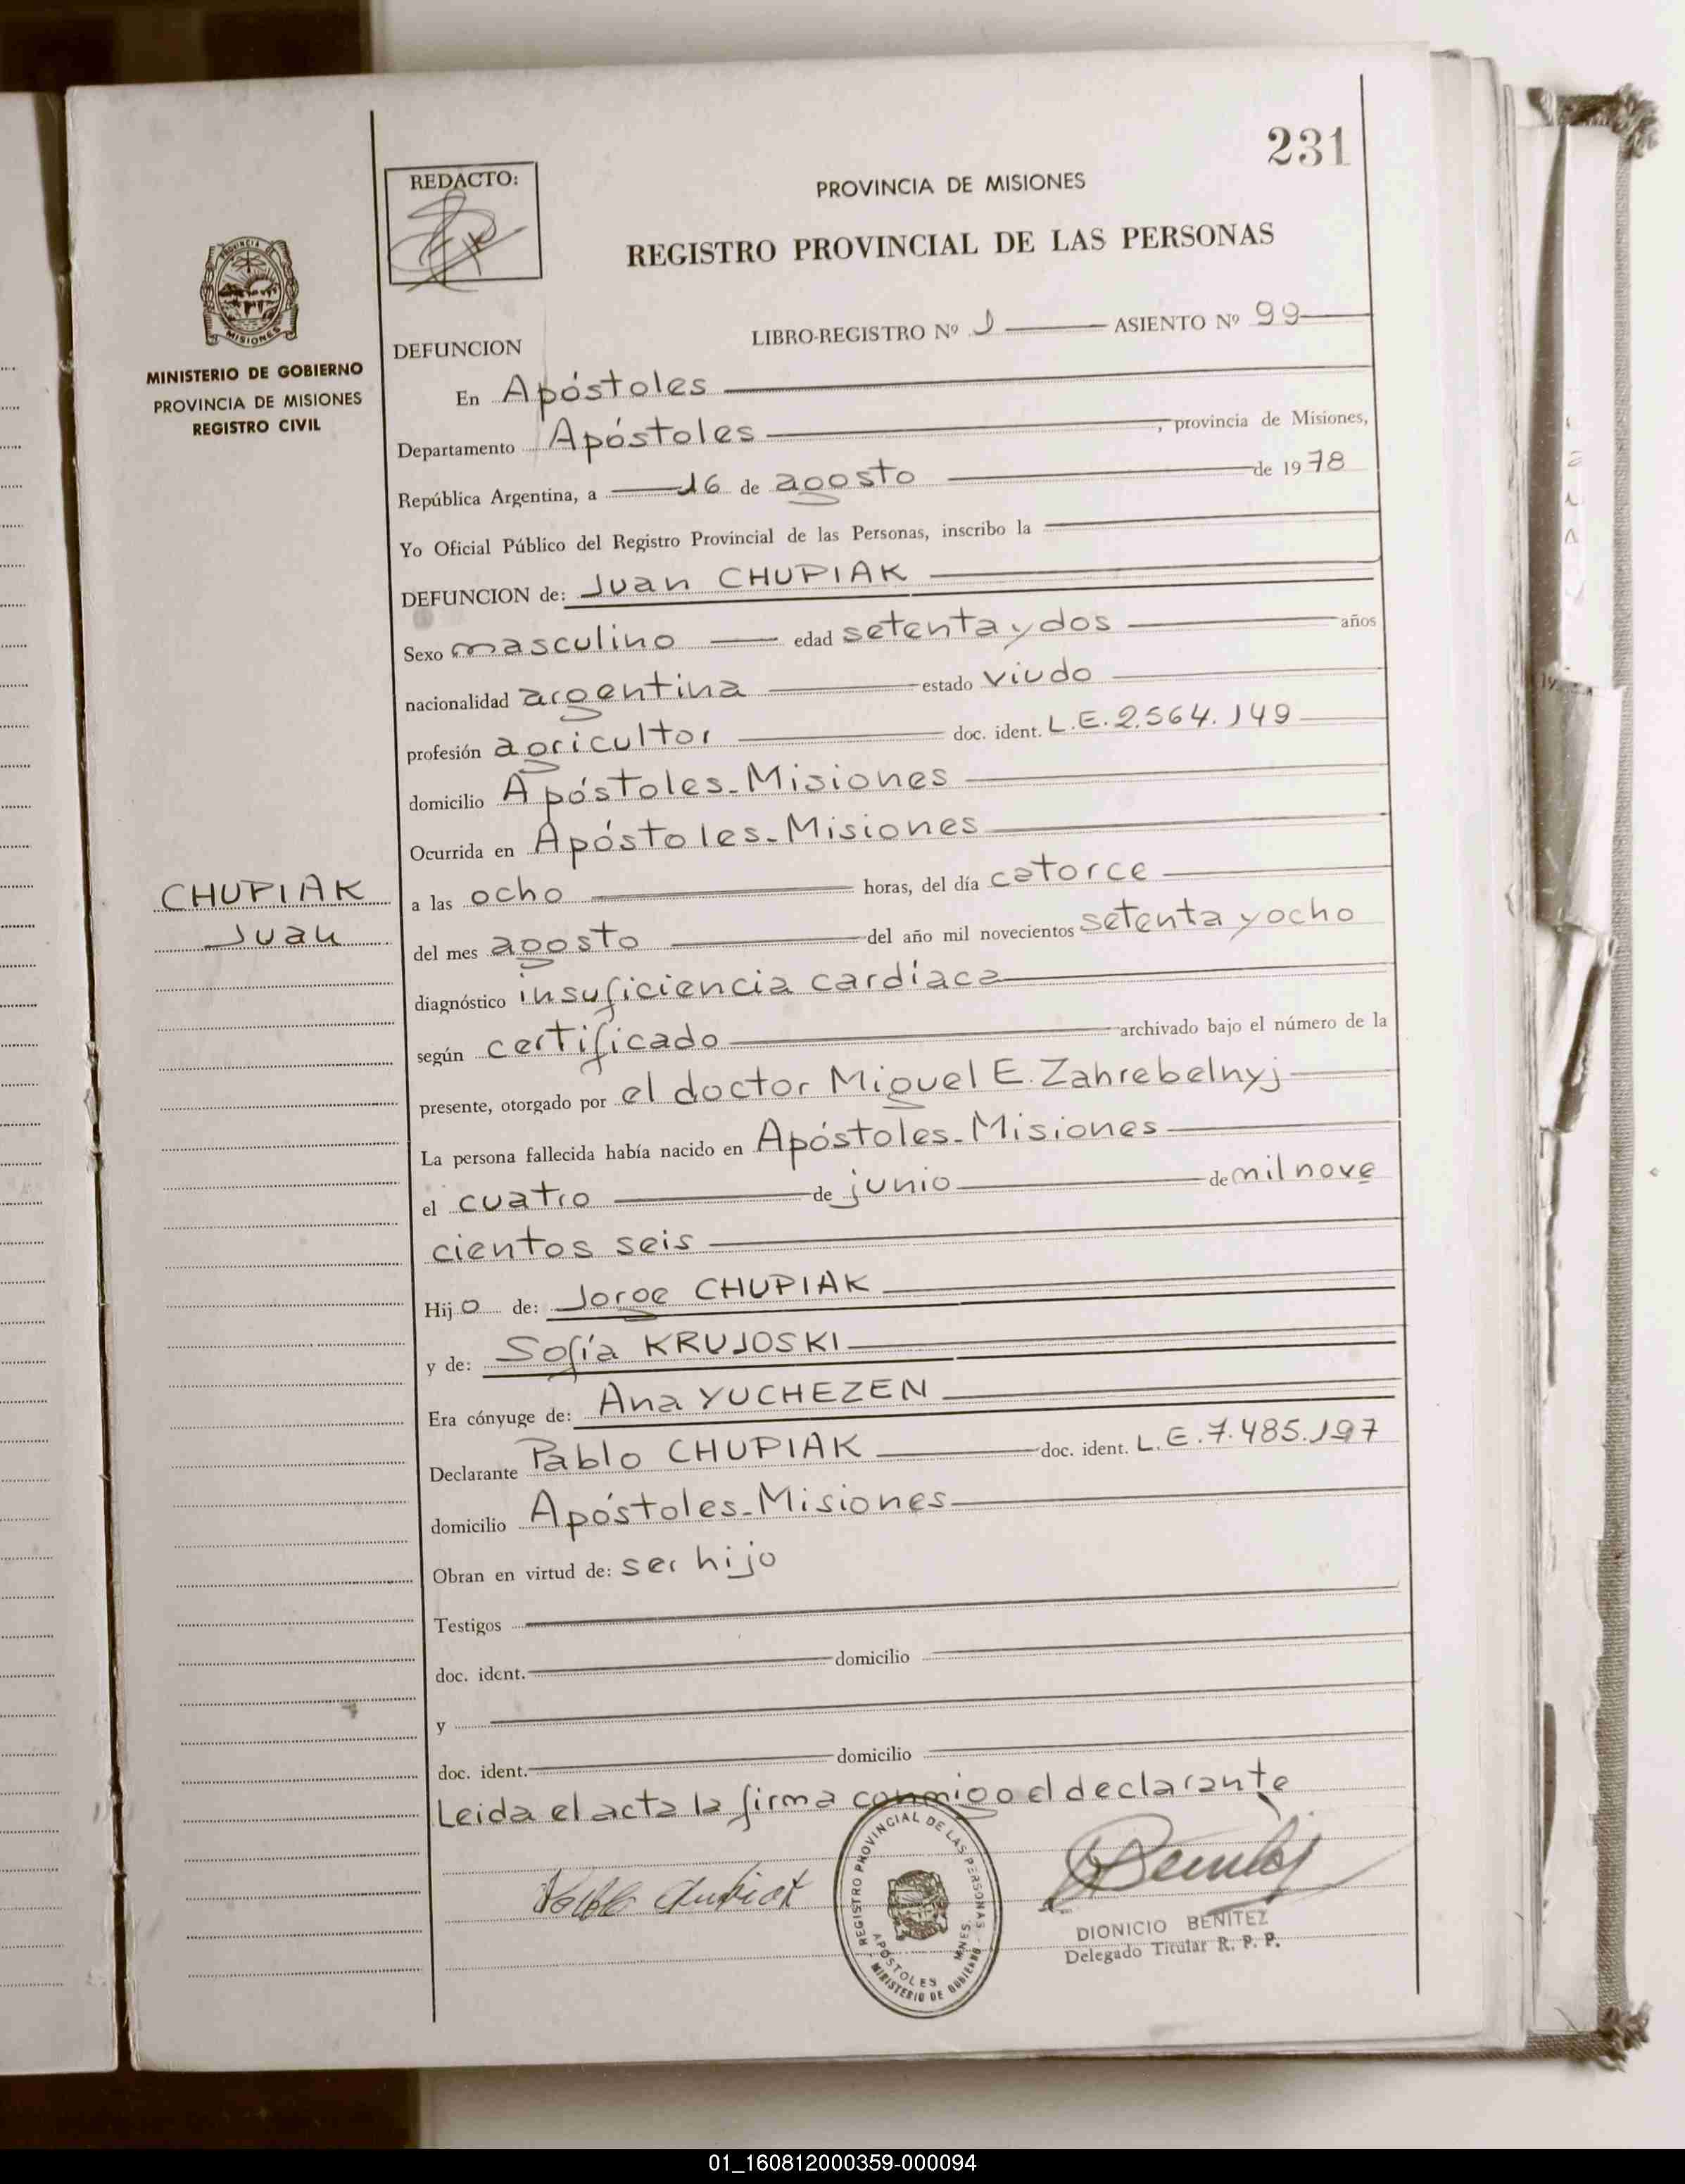 231
REDACTO:
PROVINCIA DE MISIONES
REGISTRO PROVINCIAL DE LAS PERSONAS
PROVINCIA DE
MISIONES
MINISTERIO DE GOBIERNO
PROVINCIA DE MISIONES
REGISTRO CIVIL
DEFUNCION
LIBRO-REGISTRO Nº 1 ASIENTO Nº 99
En Apóstoles
Departamento Apóstoles, provincia de Misiones,
República Argentina, a 16 de agosto de 1978
Yo Oficial Público del Registro Provincial de las Personas, inscribo la
DEFUNCION de: Juan CHUPIAK
Sexo masculino edad setenta y dos años
nacionalidad argentina estado viudo
profesión agricultor doc. ident. L.E. 2.564.149
domicilio Apóstoles-Misiones
Ocurrida en Apóstoles-Misiones
CHUPIAK
Juan
a las ocho horas, del día catorce
del mes agosto del año mil novecientos setenta y ocho
diagnóstico insuficiencia cardíaca
según certificado archivado bajo el número de la
presente, otorgado por el doctor Miguel E. Zahrebelnyj
La persona fallecida había nacido en Apóstoles-Misiones
el cuatro de junio de mil nove
cientos seis
Hijo de: Jorge CHUPIAK
y de: Sofía KRUJOSKI
Era cónyuge de: Ana YUCHEZEN
Declarante Pablo CHUPIAK doc. ident. L.E. 7.485.197
domicilio Apóstoles-Misiones
Obran en virtud de: ser hijo
Testigos
doc. ident. domicilio
y
doc. ident. domicilio
Leida el acta la firma conmigo el declarante
REGISTRO PROVINCIAL DE LAS PERSONAS
APÓSTOLES MNES.
MINISTERIO DE GOBIERNO
DIONICIO BENITEZ
Delegado Titular R. P. P.
01_160812000359-000094